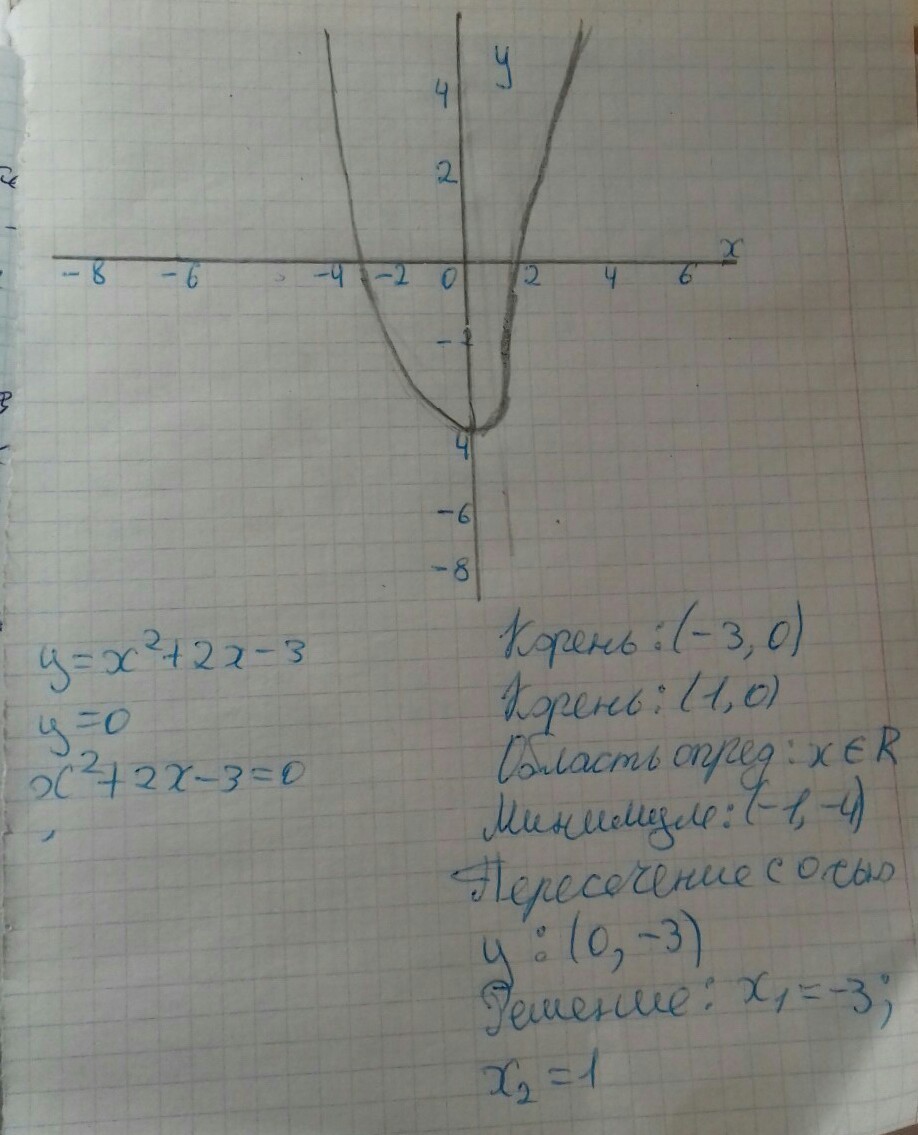 y
4
2
x
-8 -6 -4 -2 0 2 4 6
4
-6
-8
y=x²+2x-3
y=0
x²+2x-3=0
Корень: (-3,0)
Корень: (1,0)
Область опред: x ∈ R
Минимум: (-1,-4)
Пересечение с осью
y: (0,-3)
Решение: x₁=-3;
x₂=1